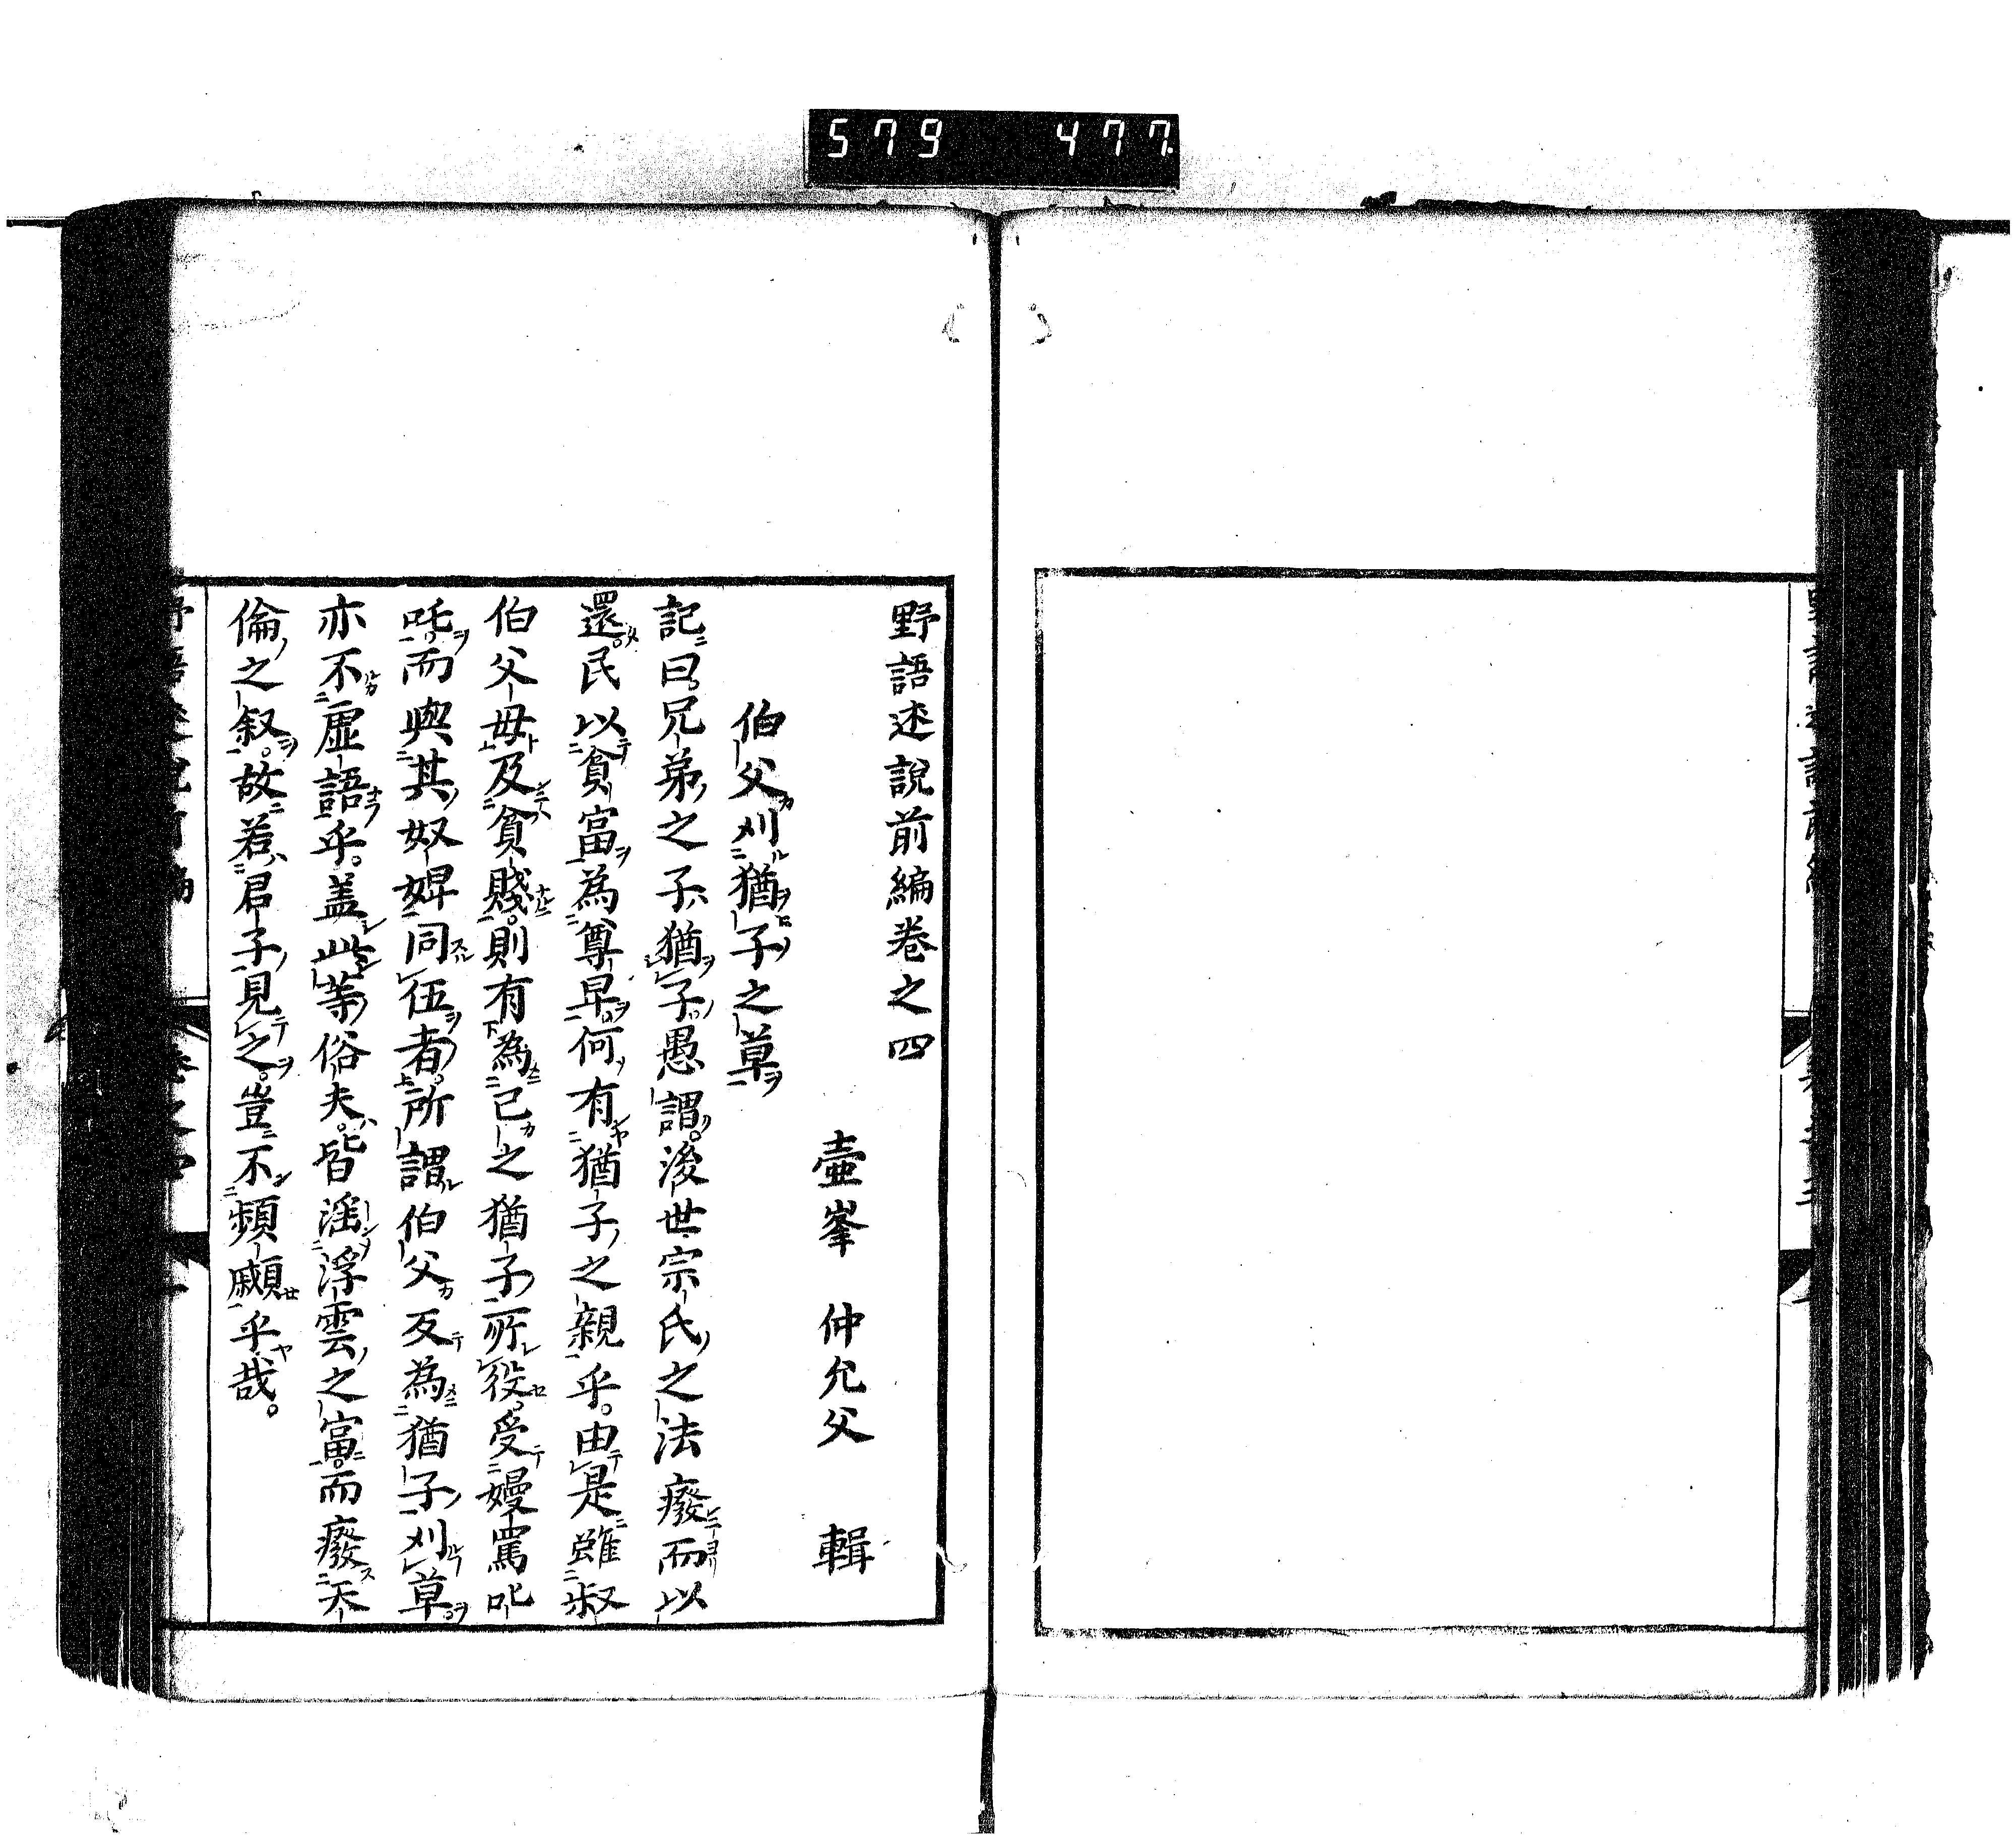 579 477
野語述說前編卷之四
壷峯 仲允父 輯
伯父刈猶子之草
記曰兄弟之子猶子愚謂後世宗氏之法廢而以
還民以貧富為尊卑何有猶子之親乎。由是雖叔
伯父母及貧賤。則有為己之猶子所役。受嫚罵叱
咤。而與其奴婢同伍者。所謂伯父反為猶子刈草。
亦不虛語乎。盖此等俗夫。皆滛浮雲之富。而廢天
倫之叙。故若君子見之。豈不頻顣乎哉。